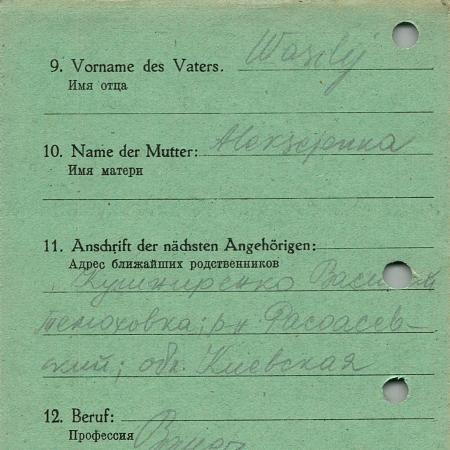 9. Vorname des Vaters. Wasylj
Имя отца
10. Name der Mutter: Aleksejenka
Имя матери
11. Anschrift der nächsten Angehörigen:
Адрес ближайших родственников
Кушниренко
р-н
ский; обл. Киевская
12. Beruf:
Профессия